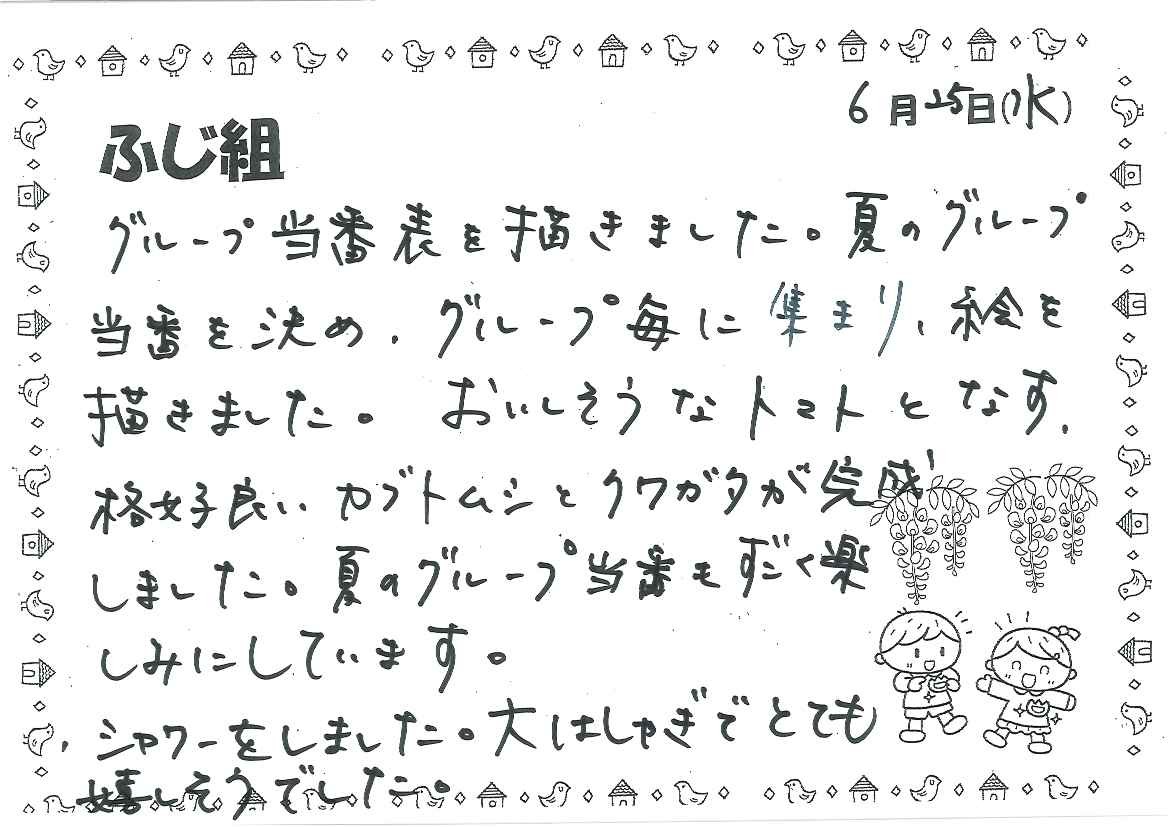 6月25日(水)
ふじ組
グループ当番表を描きました。夏のグループ
当番を決め、グループ毎に集まり、絵を
描きました。おいしそうなトマトとなす、
格好良いカブトムシとクワガタが完成
しました。夏のグループ当番もすごく楽
しみにしています。
シャワーをしました。大はしゃぎでとても
嬉しそうでした。